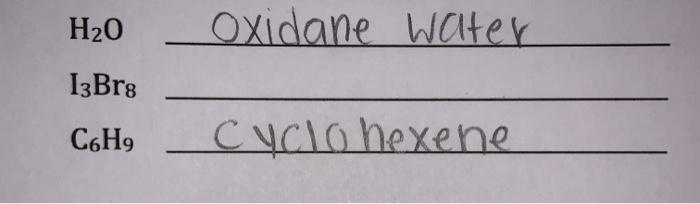 H₂O Oxidane Water
I₃Br₈
C₆H₉ Cyclohexene